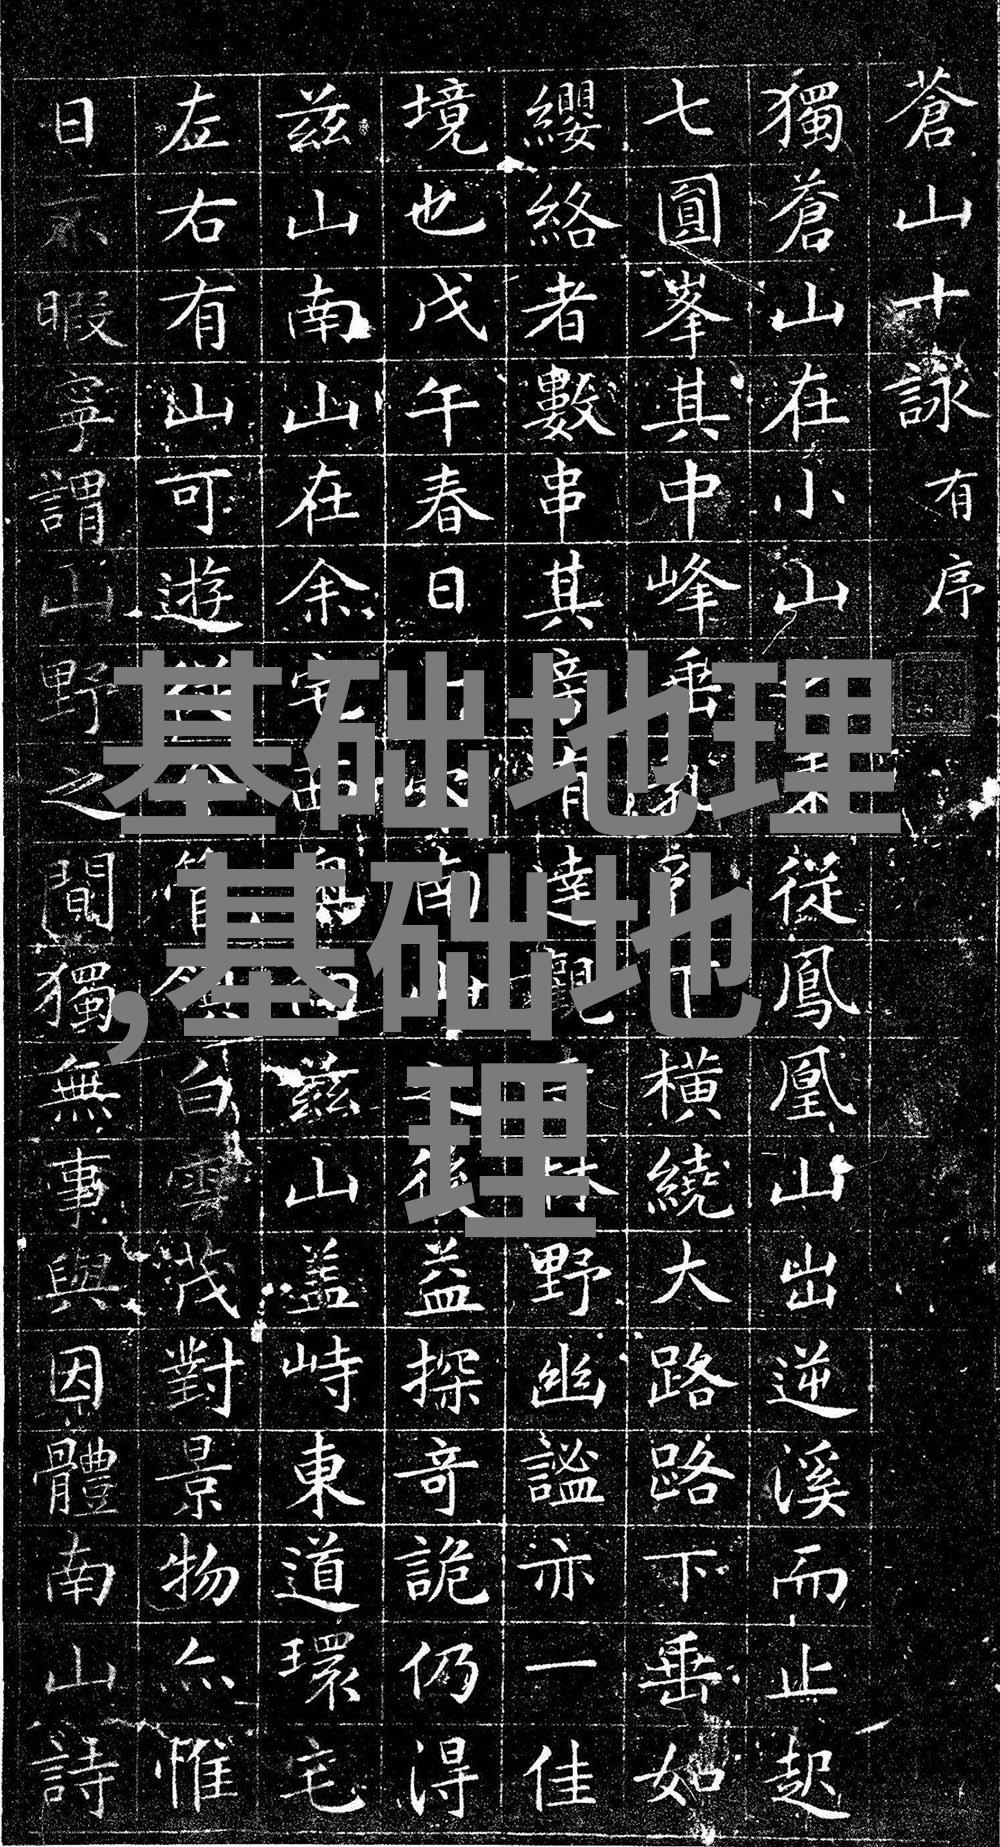 蒼山十詠有序
獨蒼山在小山從鳳凰山出逆溪而止起
七圓峯其中峰垂乳下橫繞大路路下垂如
纓絡者數串其旁有達觀林野幽謐亦一佳
境也戊午春日南山之後益探奇詭仍得
茲山南山在余宅西與茲山盖峙東道環宅
左右有山可遊管領白雲茂對景物亦惟
日不暇寧謂山野之間獨無事與因體南山詩
基础地理
,基础地
理